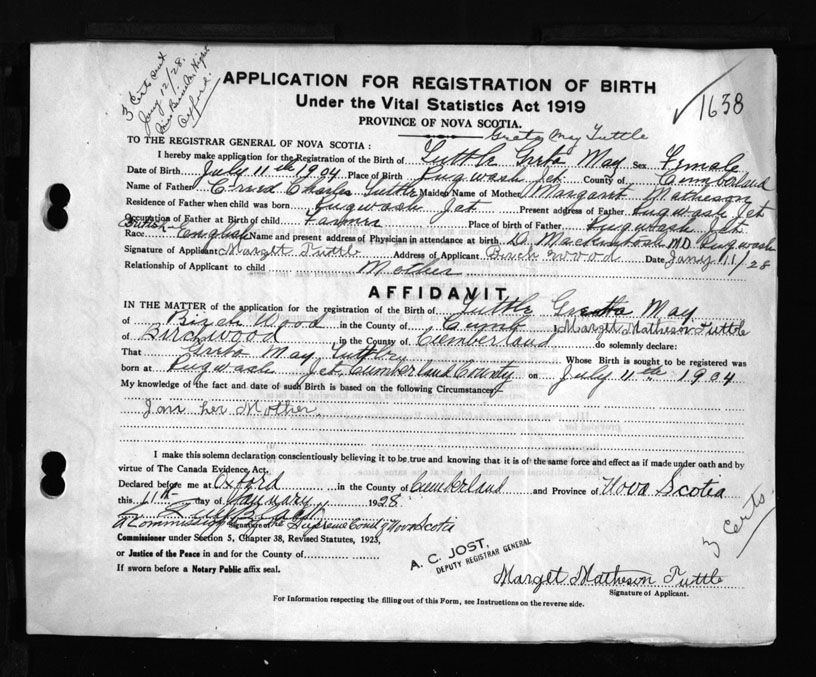 3 Certs sent
Jany 12/28.
Oxford
APPLICATION FOR REGISTRATION OF BIRTH
Under the Vital Statistics Act 1919
PROVINCE OF NOVA SCOTIA.
✓1638
Greta May Tuttle
TO THE REGISTRAR GENERAL OF NOVA SCOTIA :
I hereby make application for the Registration of the Birth of Tuttle Greta May Sex Female
Date of Birth July 11th 1904 Place of Birth Pugwash Jct. County of Cumberland
Name of Father Charles Tuttle Maiden Name of Mother Margaret Matheson
Residence of Father when child was born Pugwash Jct Present address of Father Pugwash Jct
Occupation of Father at Birth of child Farmer Place of birth of Father Pugwash Jct.
Race British-English Name and present address of Physician in attendance at birth Dr. Mackintosh MD Pugwash
Signature of Applicant Marget Tuttle Address of Applicant Birch wood Date Jany 11/28
Relationship of Applicant to child Mother
AFFIDAVIT
IN THE MATTER of the application for the registration of the Birth of Tuttle Gretta May
of Birch Wood in the County of Cumb I, Marget Matheson Tuttle
of Birchwood in the County of Cumberland do solemnly declare:
That Greta May Tuttle Whose Birth is sought to be registered was
born at Pugwash Jct. Cumberland County on July 11th 1904
My knowledge of the fact and date of such Birth is based on the following Circumstances
I am her Mother
I make this solemn declaration conscientiously believing it to be true and knowing that it is of the same force and effect as if made under oath and by
virtue of The Canada Evidence Act.
Declared before me at Oxford in the County of Cumberland and Province of Nova Scotia
this 11th day of January 1928.
A Commissioner of the Supreme Court of Nova Scotia
Signature of
Commissioner under Section 5, Chapter 38, Revised Statutes, 1923,
or Justice of the Peace in and for the County of
If sworn before a Notary Public affix seal.
A. C. JOST.
DEPUTY REGISTRAR GENERAL
3 Certs
Marget Matheson Tuttle
Signature of Applicant.
For Information respecting the filling out of this Form, see Instructions on the reverse side.